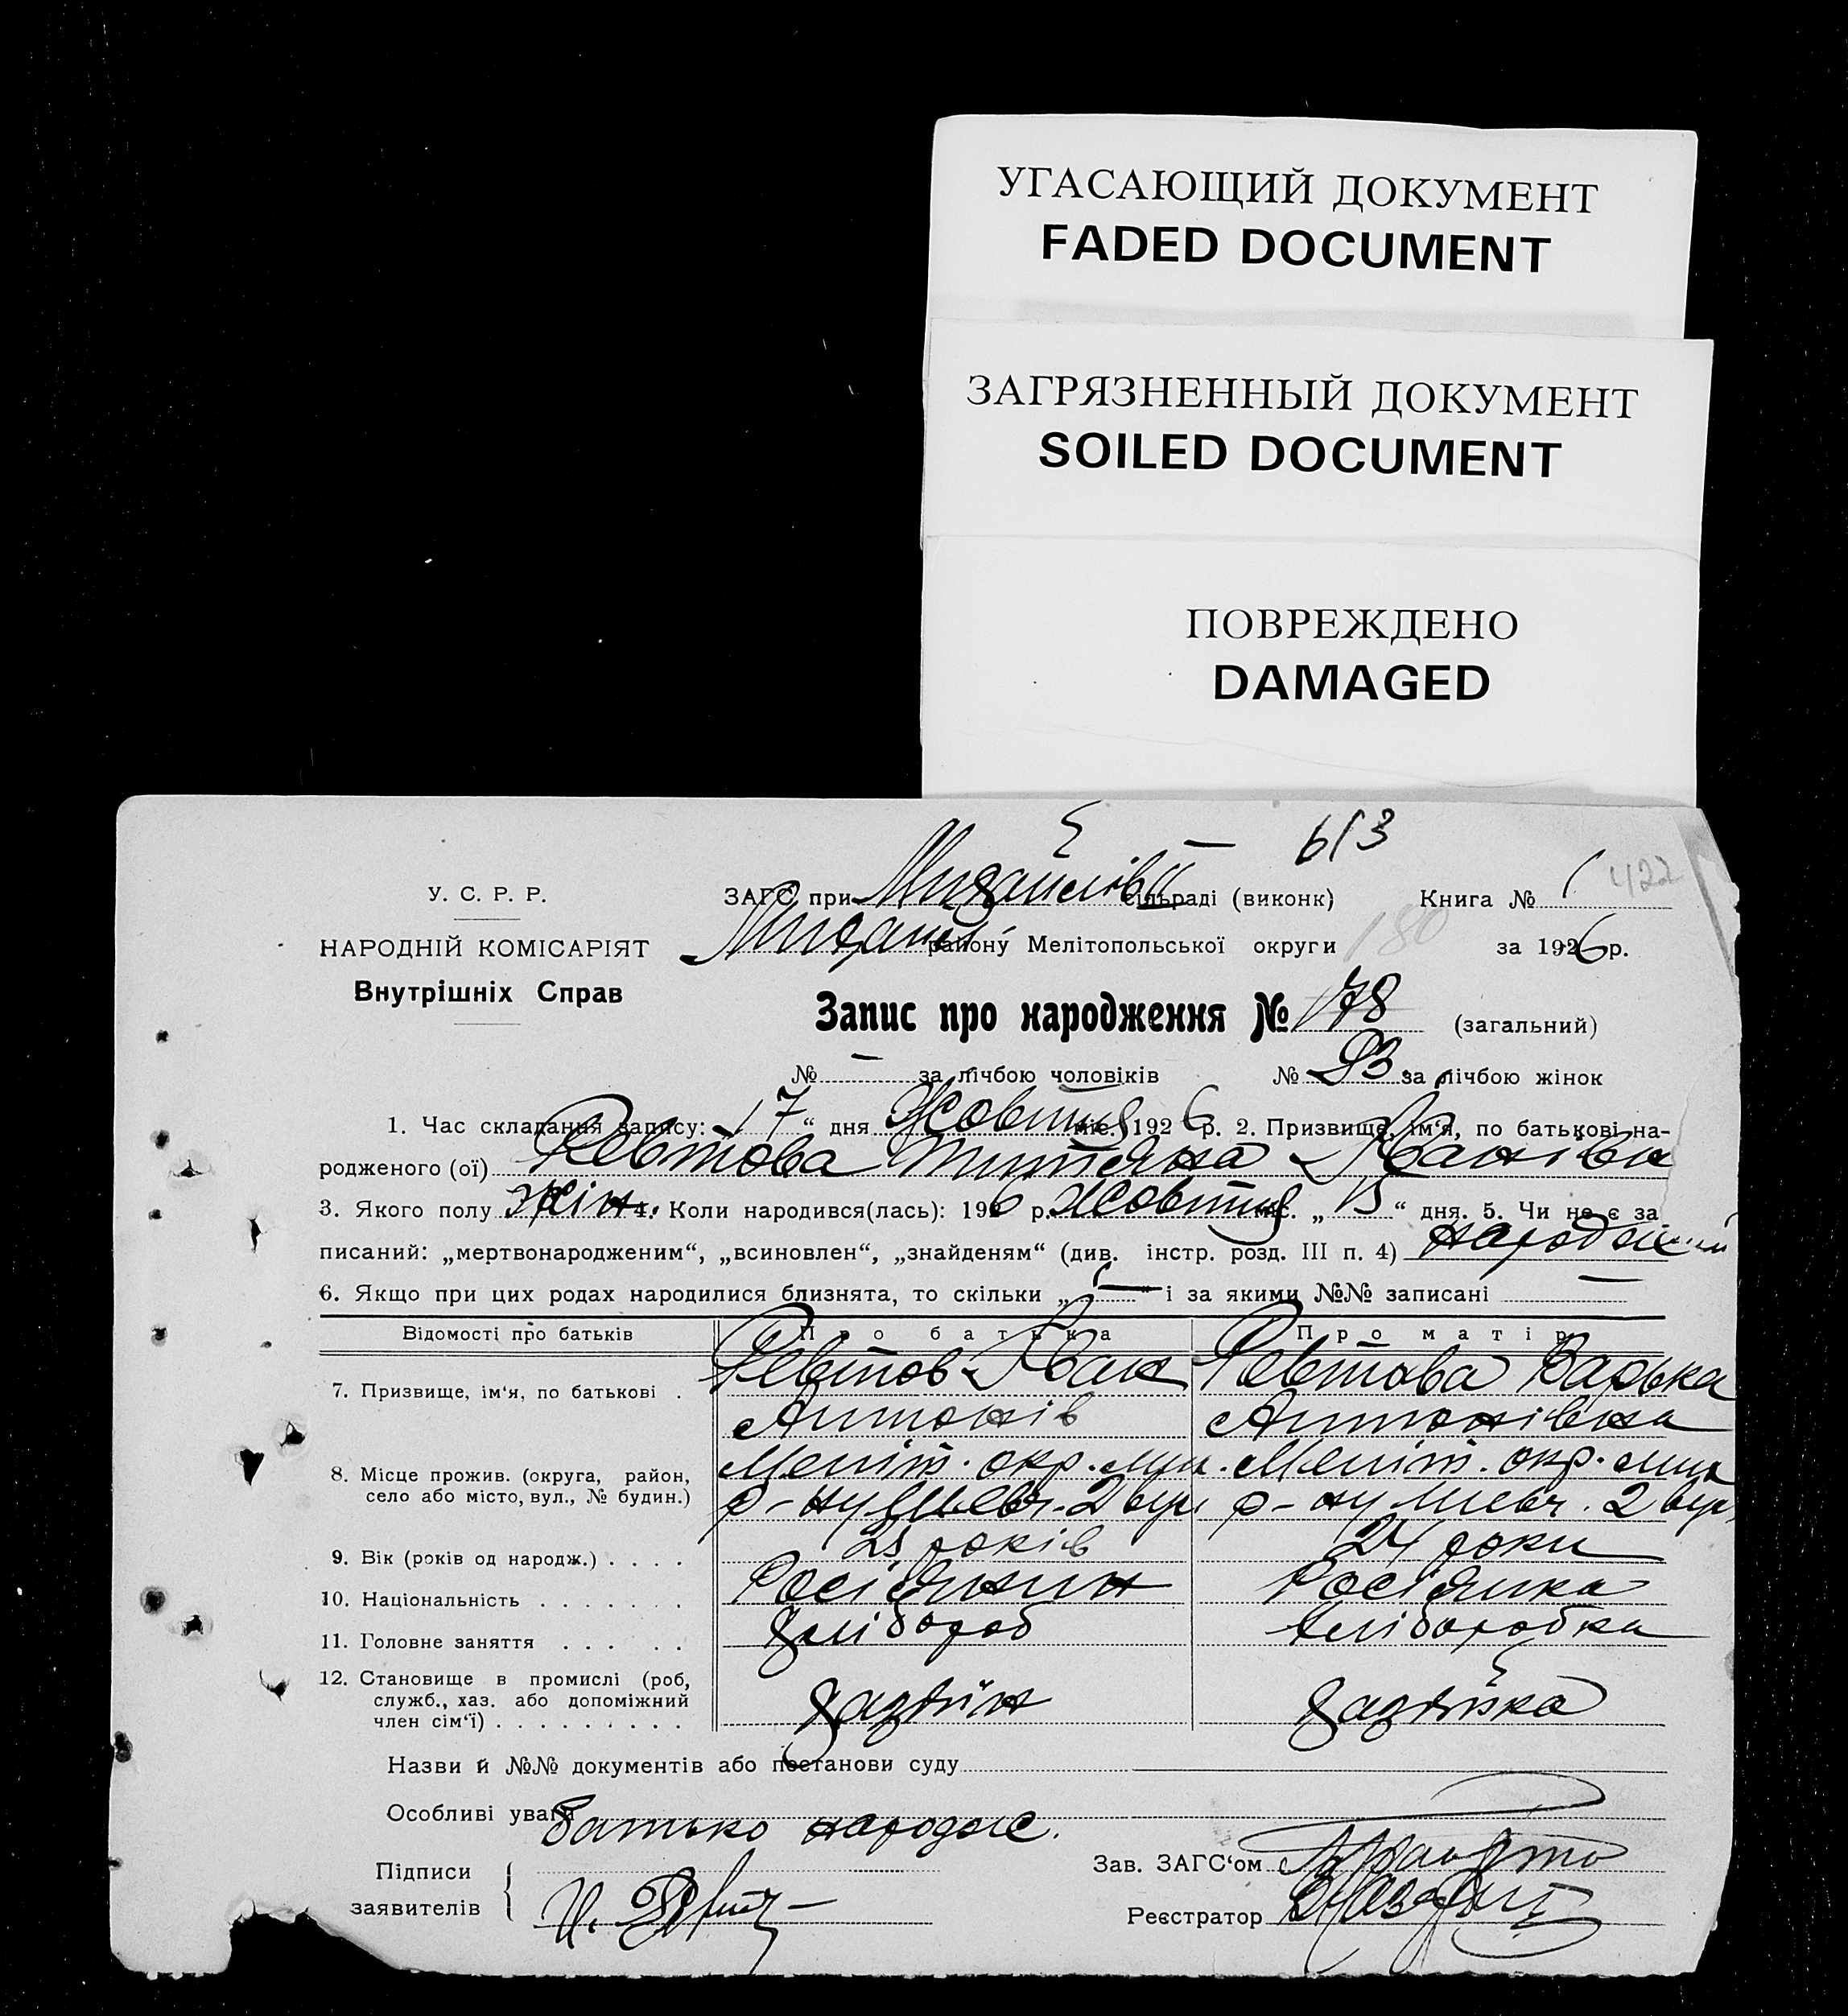 УГАСАЮЩИЙ ДОКУМЕНТ
FADED DOCUMENT
ЗАГРЯЗНЕННЫЙ ДОКУМЕНТ
SOILED DOCUMENT
ПОВРЕЖДЕНО
DAMAGED
613
У. С. Р. Р.
ЗАГС при Михайлівській сільраді (виконк) Книга № 1 422
НАРОДНІЙ КОМІСАРІЯТ
Внутрішніх Справ
Михайл району Мелітопольської округи 180 за 1926 р.
Запис про народження № 178 (загальний)
№ — за лічбою чоловіків № 83 за лічбою жінок
1. Час складання запису: 17 “ дня Жовтня міс. 1926 р. 2. Призвище, ім‘я, по батькові на-
родженого (ої) Ревтова Тит'яна Іванівн
3. Якого полу жін. 4. Коли народився(лась): 1926 р. Жовтня міс. „ 15 “ дня. 5. Чи не є за
писаний: „мертвонародженим“, „всиновлен“, „знайденям“ (див. інстр. розд. III п. 4)
6. Якщо при цих родах народилися близнята, то скільки „ — “ і за якими №№ записані —
Відомості про батьків Про батька Про матір
7. Призвище, ім‘я, по батькові . Ревтов Іван Ревтова Варька
Антонів Антонівна
8. Місце прожив. (округа, район, Меліт. окр. Мих. Меліт. окр. Мих
село або місто, вул., № будин.) 2 вул 2 вул
9. Вік (років од народж.) . . . . 25 років 24 роки
10. Національність . . . . . . . Росіянин Росіянка
11. Головне заняття . . . . . хлібороб хліборобка
12. Становище в промислі (роб,
служб., хаз. або допоміжний
член сім‘ї) . . . . . . . . . хазяїн хазяйка
Назви й №№ документів або постанови суду
Особливі уваги Батько народж.
Підписи
заявителів
Зав. ЗАГС‘ом
Реєстратор